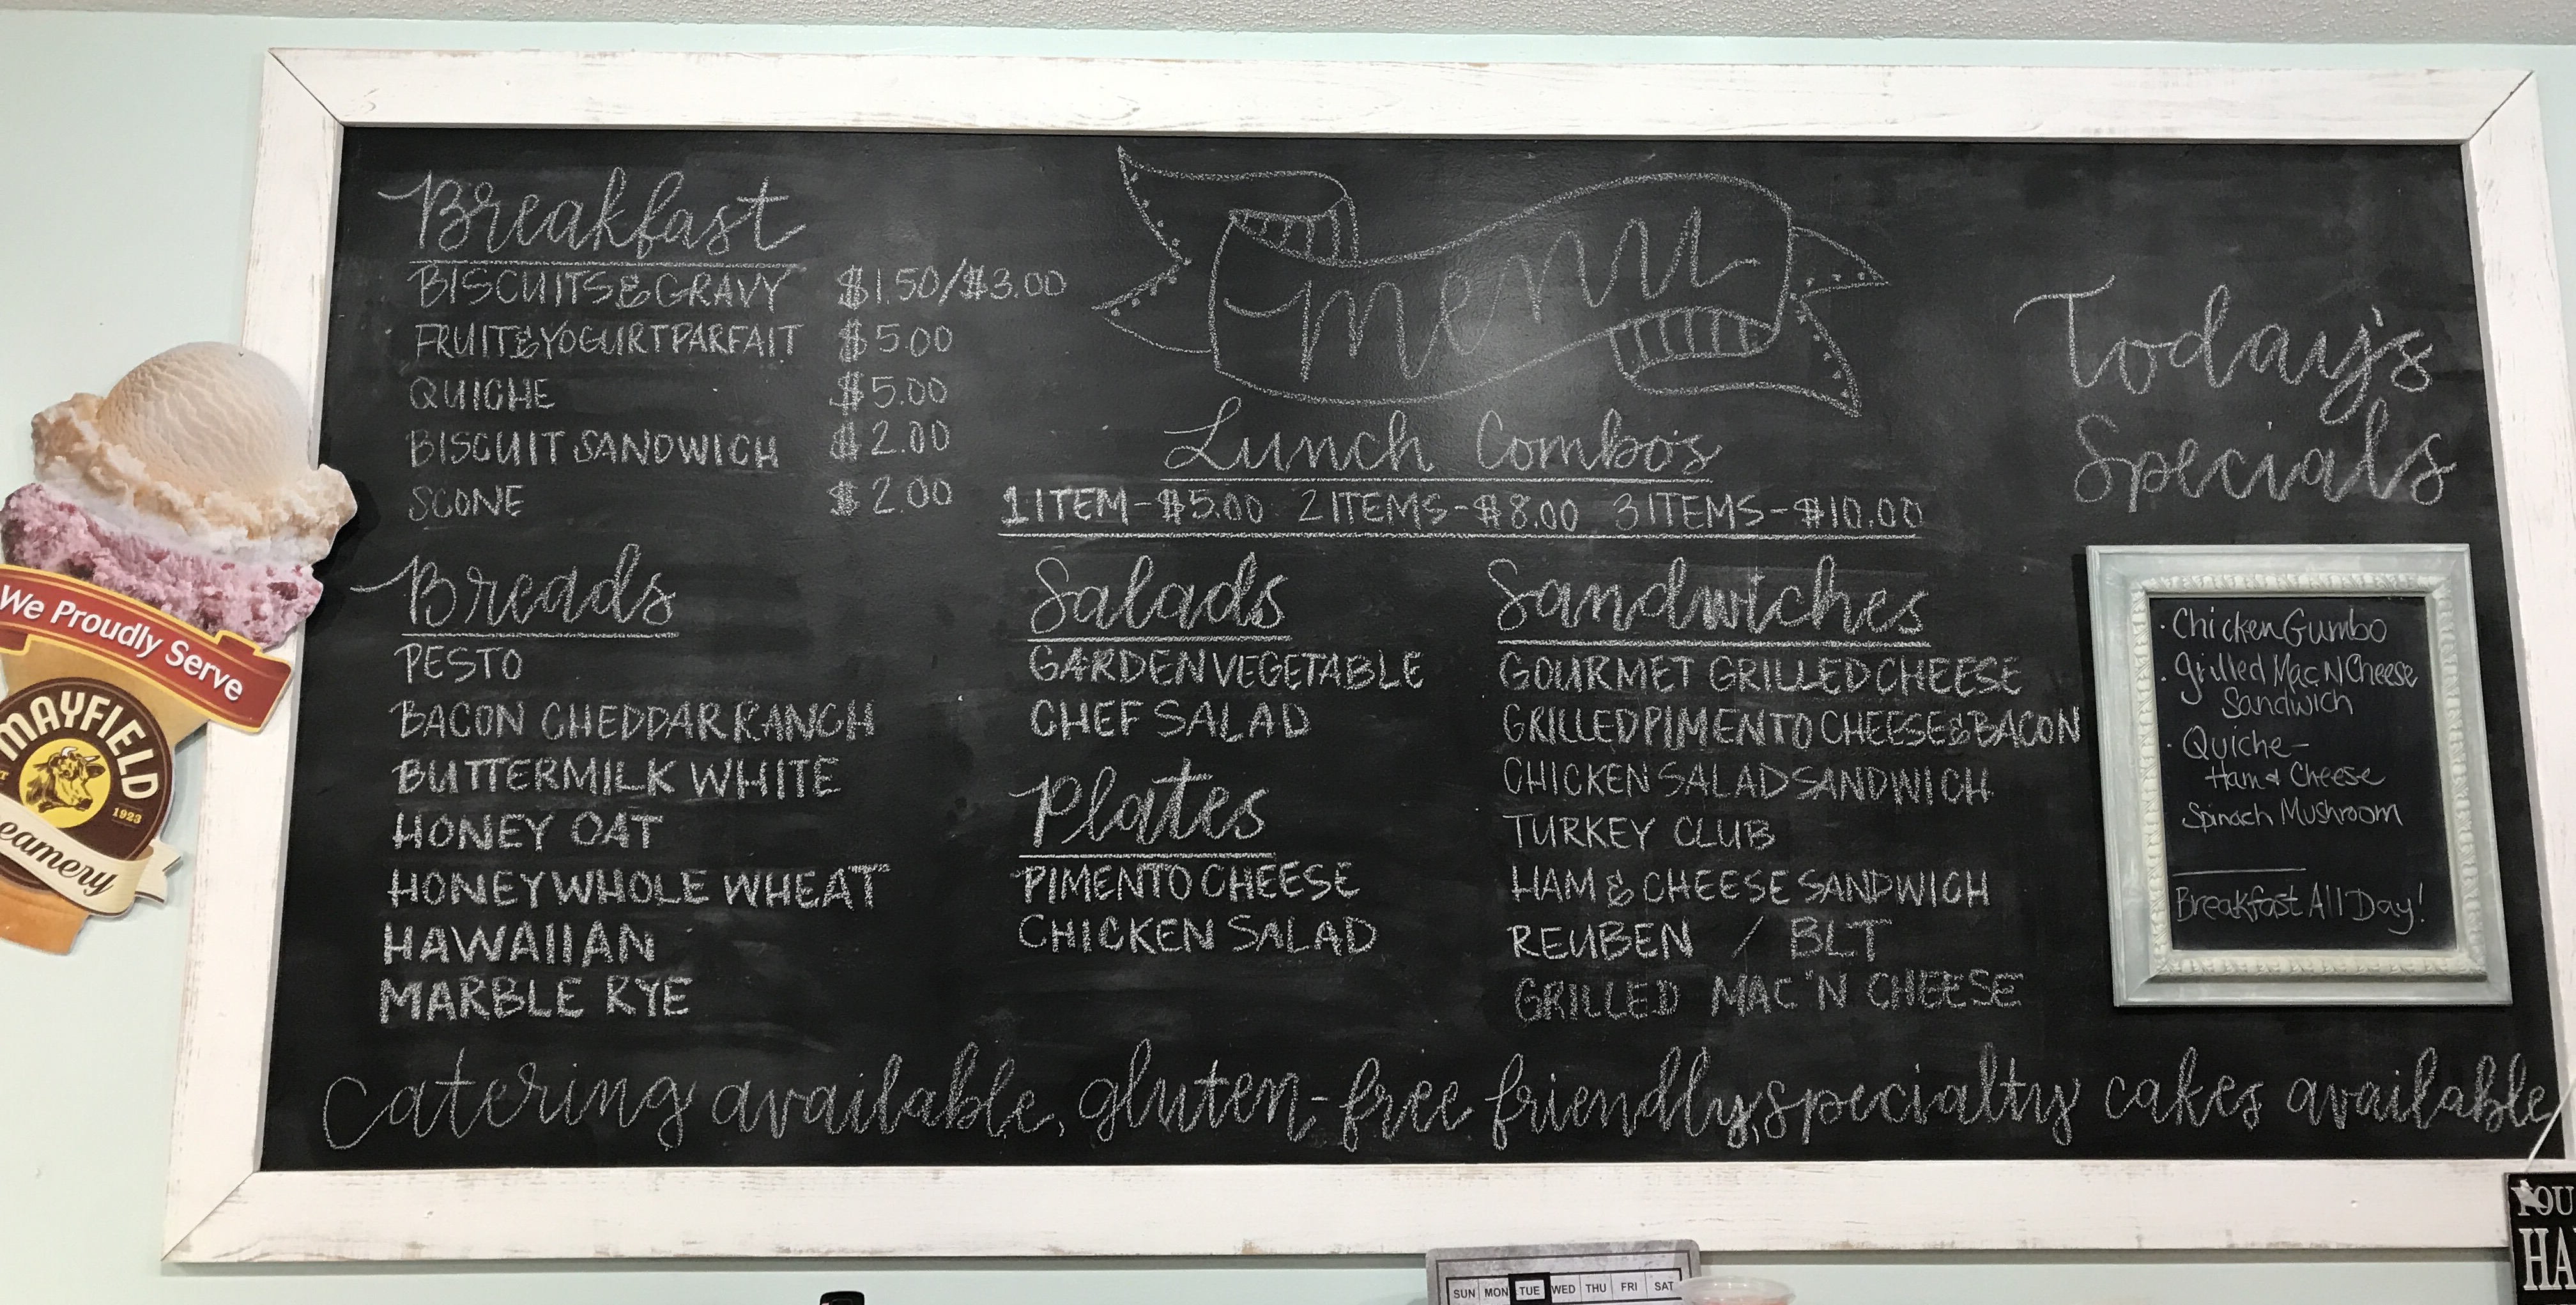 Breakfast
BISCUITS & GRAVY $1.50/$3.00
FRUIT & YOGURT PARFAIT $5.00
QUICHE $5.00
BISCUIT SANDWICH $2.00
SCONE $2.00
Breads
PESTO
BACON CHEDDAR RANCH
BUTTERMILK WHITE
HONEY OAT
HONEY WHOLE WHEAT
HAWAIIAN
MARBLE RYE
menu
Lunch Combo's
1 ITEM-$5.00 2 ITEMS-$8.00 3 ITEMS-$10.00
Salads
GARDEN VEGETABLE
CHEF SALAD
Plates
PIMENTO CHEESE
CHICKEN SALAD
Sandwiches
GOURMET GRILLED CHEESE
GRILLED PIMENTO CHEESE & BACON
CHICKEN SALAD SANDWICH
TURKEY CLUB
HAM & CHEESE SANDWICH
REUBEN / BLT
GRILLED MAC 'N CHEESE
Today's
Specials
· Chicken Gumbo
· Grilled Mac N Cheese
Sandwich
· Quiche-
Ham & Cheese
Spinach Mushroom
Breakfast All Day!
Catering available, gluten-free friendly, specialty cakes available
We Proudly Serve
MAYFIELD
1923
eamery
YOU
HA
SUN MON TUE WED THU FRI SAT